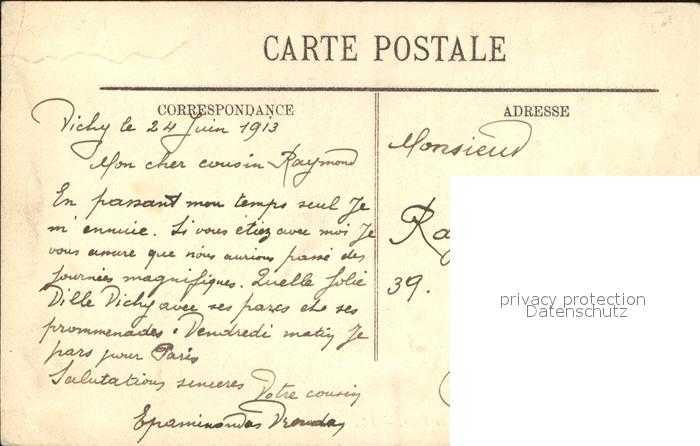 CARTE POSTALE
CORRESPONDANCE
ADRESSE
Vichy le 24 Juin 1913
Mon cher cousin Raymond
En passant mon temps seul Je
m'ennuie. Si vous étiez avec moi Je
vous assure que nous aurions passé des
Journées magnifiques. Quelle Jolie
Ville Vichy avec ses parcs et ses
prommenades. Vendredi matin Je
pars pour Paris
Salutations sinceres
Votre cousin
Epaminondas
Monsieur
39.
privacy protection
Datenschutz